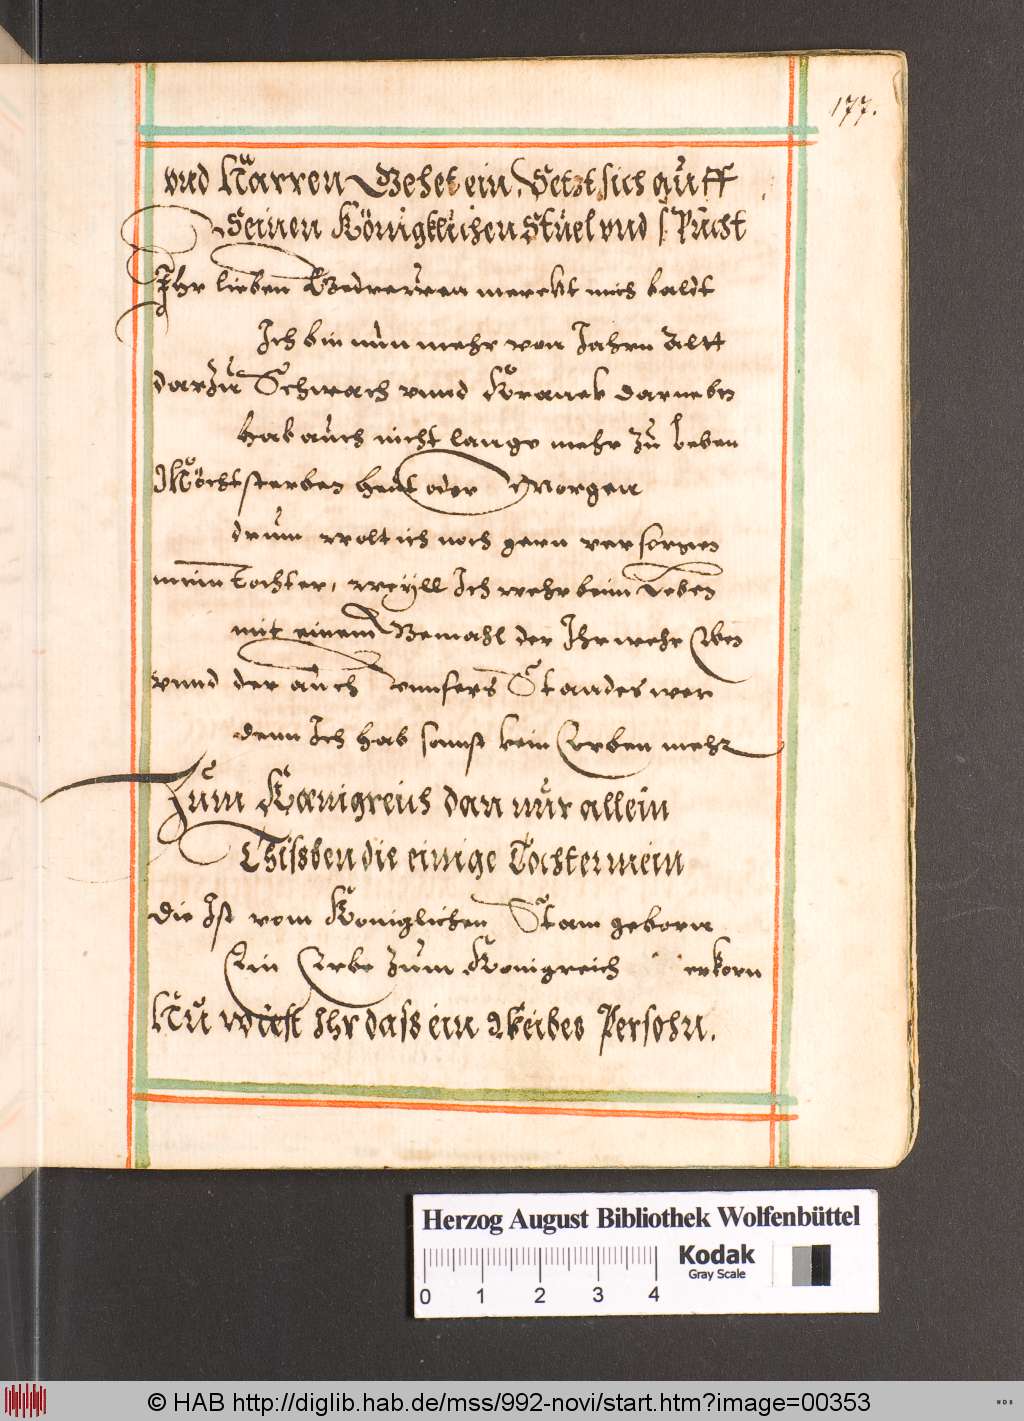 177.
vnd Narren Gehet ein, Setzt sich auff
Seinen Königklichen Stuel vnd spricht
Ihr lieben Gedrewen merckt mich baldt
Ich bin nun mehr von Jahrn Altt
darzu Schwach vnnd Kranck darnebn
hab auch nicht lange mehr zu Leben
Möcht sterben heut oder Morgen
drum wolt ich noch gern versorgen
mein tochter, weyll Ich wehr beim Leben
mit einem Gemahl der Ihr wehr Eben
vnnd der auch vnnsers Standes wer
denn Ich hab sonnst kein Erben mehr
Zum Kœnigreich dan nur allein
Thissben die einige Tochter mein
die Ist vom Koniglichen Stam geborn
Ein Erbe zum Konigreich erkorn
Nu wiest Ihr dass ein Weibes Persohn.
Herzog August Bibliothek Wolfenbüttel
Kodak
Gray Scale
0 1 2 3 4
© HAB http://diglib.hab.de/mss/992-novi/start.htm?image=00353